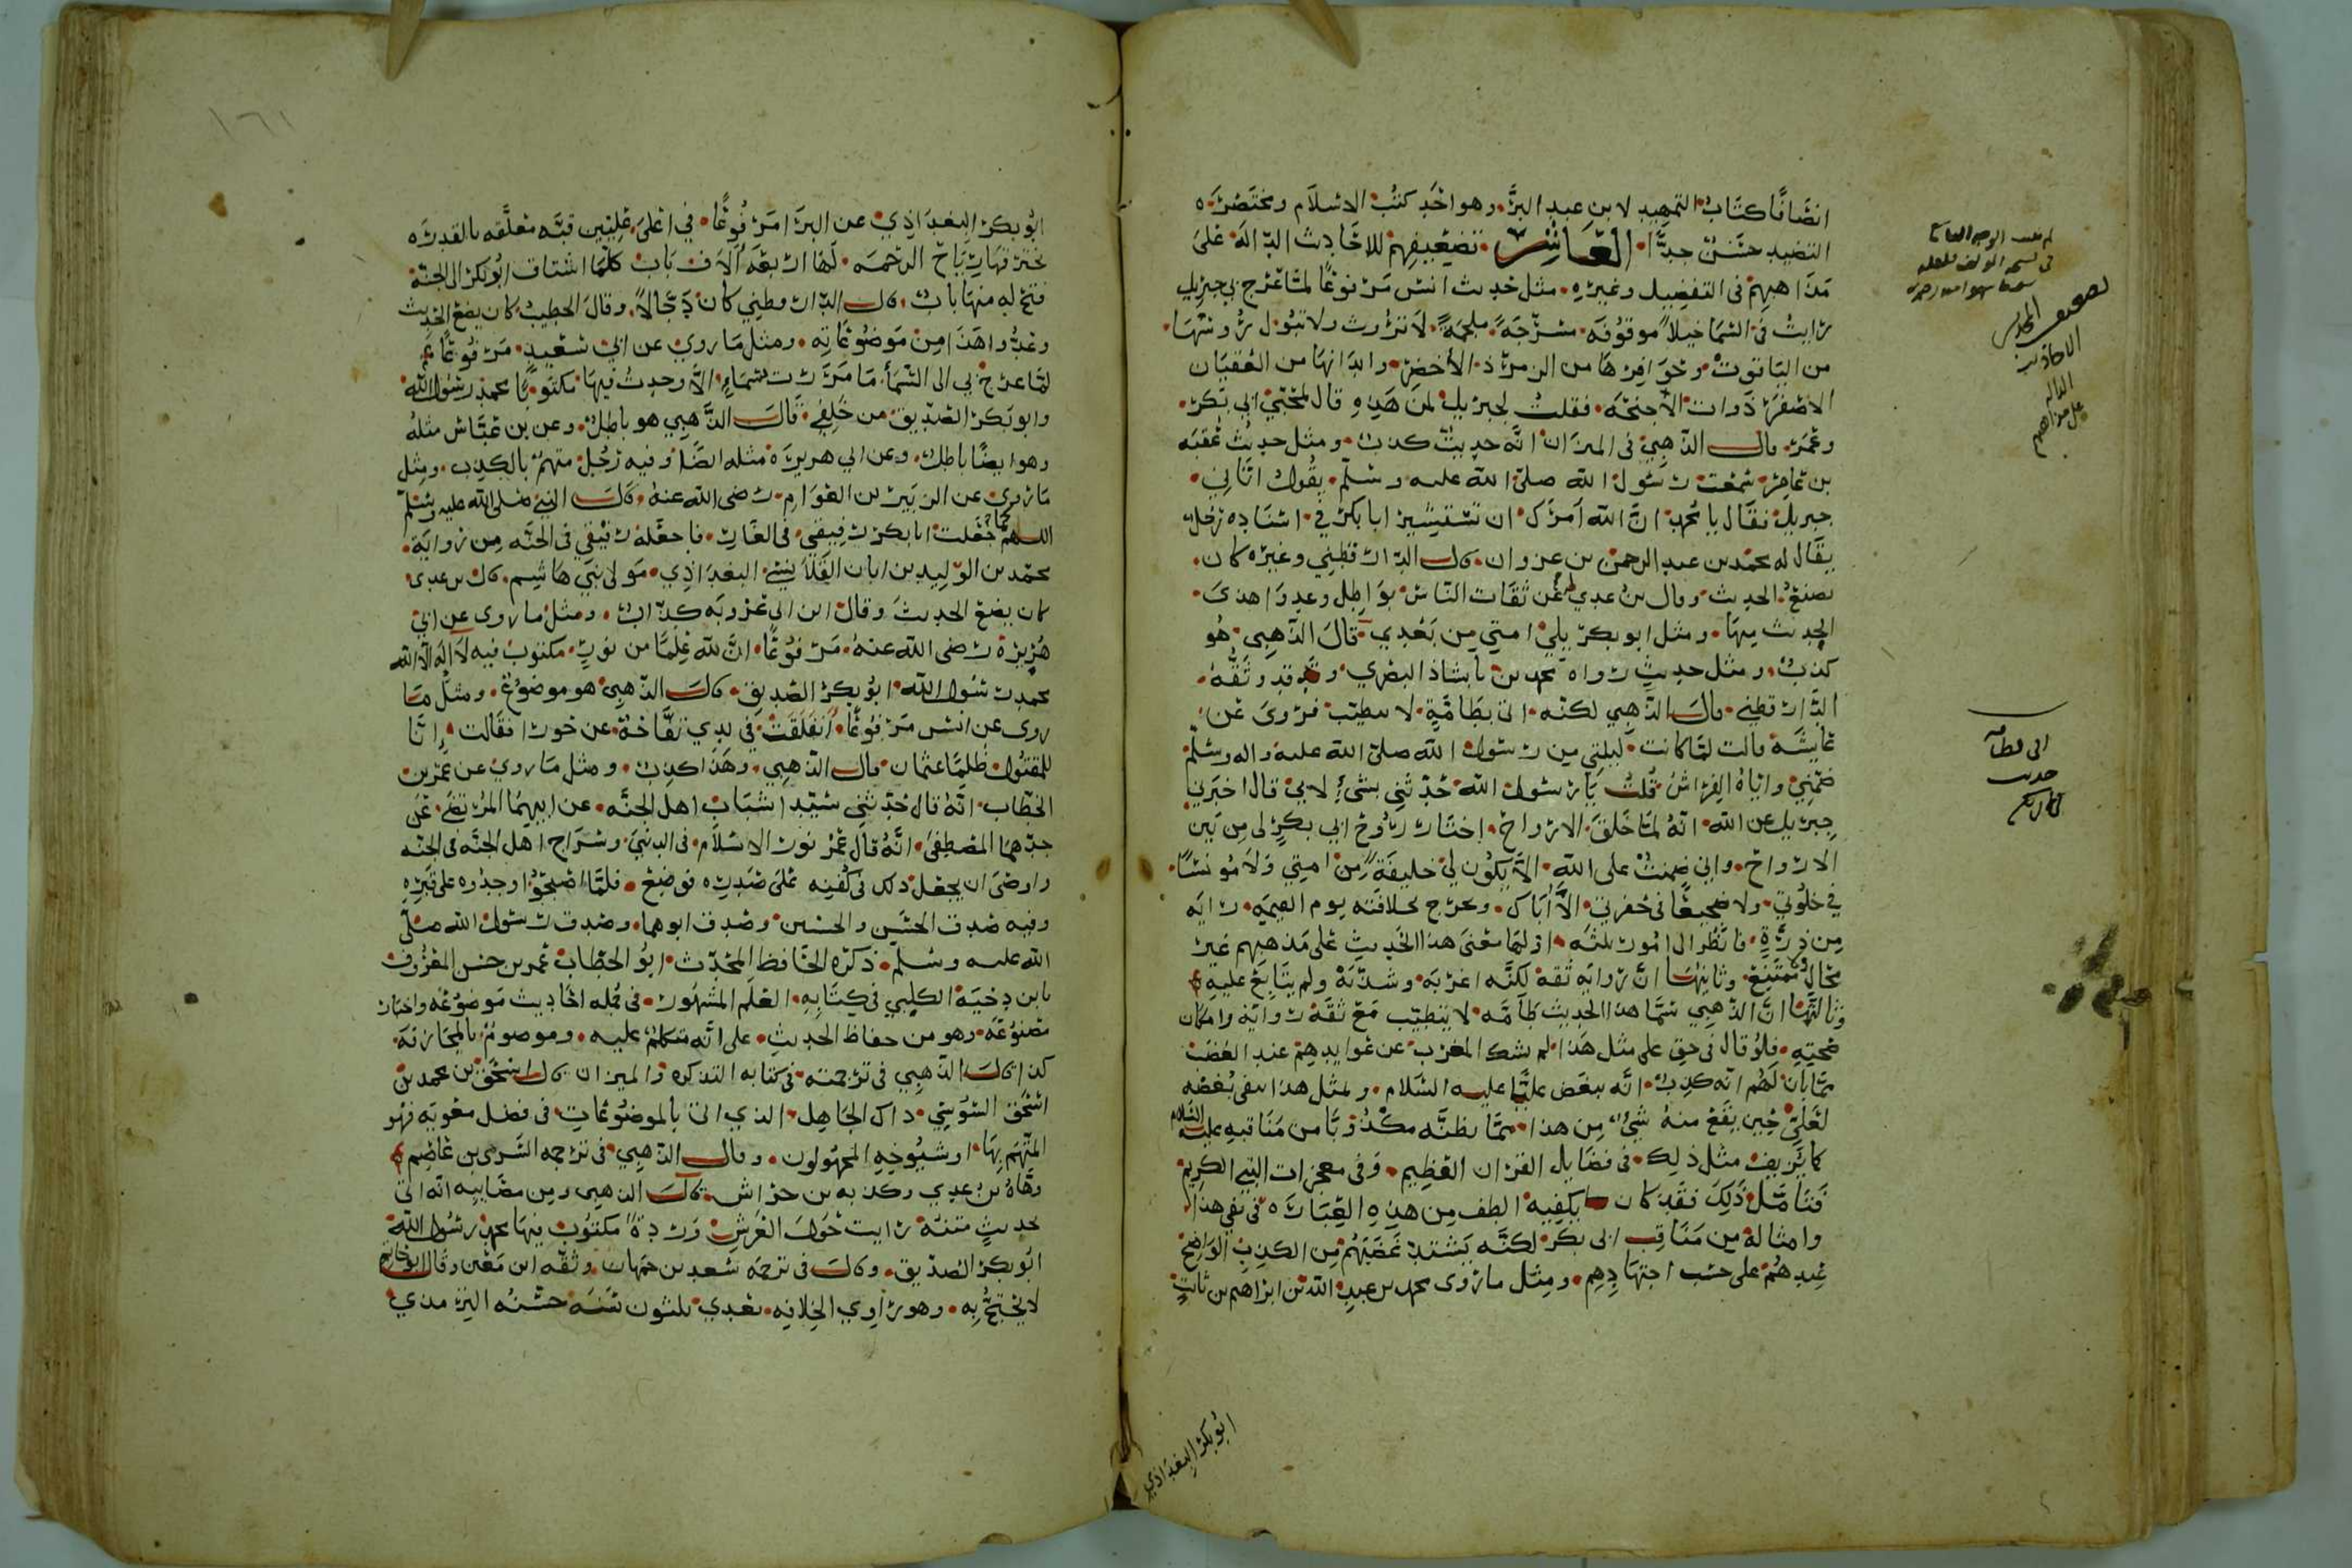 انصافا كتاب التمهيد لابن عبد البر وهو احد كتب الاسلام ومختصره
حسن جدا العاشر تضعيفهم للاحاديث الدالة على
مذاهبهم في التفضيل وغيره مثل حديث انس مرفوعا لما عرج بي جبريل
رايت في السما خيلا موقوفه مسرجة ملجمة لا تروث ولا تبول رؤوسها
من الياقوت وحوافرها من الزمرذ الاخضر وابدانها من العقيان
الاصفر ذوات الاجنحه فقلت لجبريل لمن هذه قال لمحبي ابي بكر
وعمر قال الذهبي في الميزان انه حديث كذب ومثل حديث عقبه
بن عامر سمعت رسول الله صلى الله عليه وسلم يقول اتاني
جبريل فقال يا محمد ان الله امرك ان تستشير ابا بكر في اسناده رجل
يقال له محمد بن عبد الرحمن بن غزوان قال الدارقطني وغيره كان
يضع الحديث وقال بن عدي له عن ثقات الناس بواطل وعدوا هذى
الحديث منها ومثل ابو بكر يلي امتي من بعدي قال الذهبي هو
كذب ومثل حديث رواه محمد بن بابشاذ البصري وقد وثقه
الدارقطني قال الذهبي لكنه اتى بطامة لا تطيب فروى عن
عايشة قالت لما كانت ليلتي من رسول الله صلى الله عليه واله وسلم
ضمني واياه الفراش قلت يا رسول الله حدثني بشيء لابي قال اخبرني
جبريل عن الله انه لما خلق الارواح اختار روح ابي بكر لي من بين
الارواح واني ضمنت على الله الا يكون لي خليفة من امتي ولا مونسا
في خلوتي ولا ضجيعا في حفرتي الا اباك وتخرج لخلافته يوم القيمه رايه
من درة فانظر الى امور ثلثه اولها معنى هذا الحديث على مذهبهم غير
محال ولا ممتنع وثانيها ان روايه ثقة لكنه اغربه وشذ به ولم يتابع عليه
وثالثها ان الذهبي سما هذا الحديث طآمه لا يتطيب مع ثقة رواته وامكان
صحته فلو قال في حق علي مثل هذا لم يشك المغرب عن عوايدهم عند الغضب
مما بان لهم انه كذب انه يبغض عليا عليه السلام ولمثل هذا ينفى بغضه
لعلي حين يقع منه شيء من هذا مما يظنه مكذوبا من مناقبه عليه السلام
كما يزيف مثل ذلك في فضايل القران العظيم وفي معجزات النبي الكريم
فتامل ذلك فقد كان يكفيه الطف من هذه العباره في نفي هذا
وامثاله من مناقب ابي بكر لكنه يشتد غضبهم من الكذب الواضح
عندهم على حسب اجتهادهم ومثل ما روى محمد بن عبد الله بن ابراهيم بن ثابت
ابو بكر البغداذي
تضعيف المحدثين
الاحاديث
الداله
على مذاهبهم
اتى بطامه
حديث
١٦١
ابو بكر البغداذي عن البرا مرفوعا في اعلى عليين قبه معلقه بالقدره
تخترقها رياح الرحمه لها اربعة الاف باب كلما اشتاق ابو بكر الى الجنة
فتح له منها باب قال الدارقطني كان دجالا وقال الخطيب كان يضع الحديث
وعدوا هذا من موضوعاته ومثل ما روي عن ابي سعيد مرفوعا
لما عرج بي الى السما ما مررت بسماء الا وجدت فيها مكتوبا محمد رسول الله
وابو بكر الصديق من خلفي قال الذهبي هو باطل وعن بن عباس مثله
وهو ايضا باطل وعن ابي هريرة مثله ايضا وفيه رجل متهم بالكذب ومثل
ما روي عن الزبير بن العوام رضي الله عنه قال النبي صلى الله عليه وسلم
اللهم كما جعلت ابا بكر رفيقي في الغار فاجعله رفيقي في الجنه من رواية
محمد بن الوليد بن ابان القلانسي البغداذي مولى بني هاشم قال بن عدى
كان يضع الحديث وقال ابن ابي عروبه كذاب ومثل ما روى عن ابي
هريرة رضي الله عنه مرفوعا ان لله علما من نور مكتوب فيه لا اله الا الله
محمد رسول الله ابو بكر الصديق قال الذهبي هو موضوع ومثل ما
روى عن انس مرفوعا انفلقت في يدي تفاحة عن حورا فقالت انا
للمقتول ظلما عثمان قال الذهبي وهذا كذب ومثل ما روي عن عمر بن
الخطاب انه قال حدثني سيدا شباب اهل الجنه عن ابيهما المرتضى عن
جدهما المصطفى انه قال عمر نور الاسلام في الدنيى وسراج اهل الجنه في الجنه
واوصى ان يجعل ذلك في كفنه على صدره فوضع فلما اصبحوا وجدوه على قبره
وفيه صدق الحسن والحسين وصدق ابوهما وصدق رسول الله صلى
الله عليه وسلم ذكره الحافظ المحدث ابو الخطاب عمر بن حسن المعروف
بابن دحية الكلبي في كتابه العلم المشهور في جملة احاديث موضوعه واخبار
مصنوعه وهو من حفاظ الحديث على انه متكلم عليه وموصوم بالمجازفه
كذا قال الذهبي في ترجمته في كتابه التذكره والميزان قال اسحق بن محمد بن
اسحق السوسي ذاك الجاهل الذي اتى بالموضوعات في فضل معويه فهو
المتهم بها او شيوخه المجهولون وقال الذهبي في ترجمه السرى بن عاصم
وهاه بن عدي وكذبه بن خراش قال الذهبي ومن مصايبه انه اتى
بحديث متنه رايت حول العرش وردة مكتوب فيها محمد رسول الله
ابو بكر الصديق وقال في ترجمه سعيد بن جمهان وثقه ابن معين وقال ابو حاتم
لا يحتج به وهو راوي الخلافه بعدي ثلثون سنه حسنه الترمذي